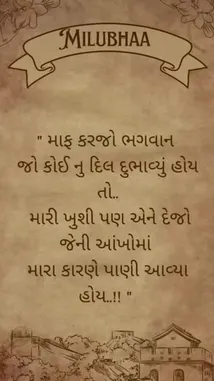 MILUBHAA
" માફ કરજો ભગવાન
જો કોઈ નુ દિલ દુભાવ્યું હોય
તો..
મારી ખુશી પણ એને દેજો
જેની આંખોમાં
મારા કારણે પાણી આવ્યા
હોય..!! "